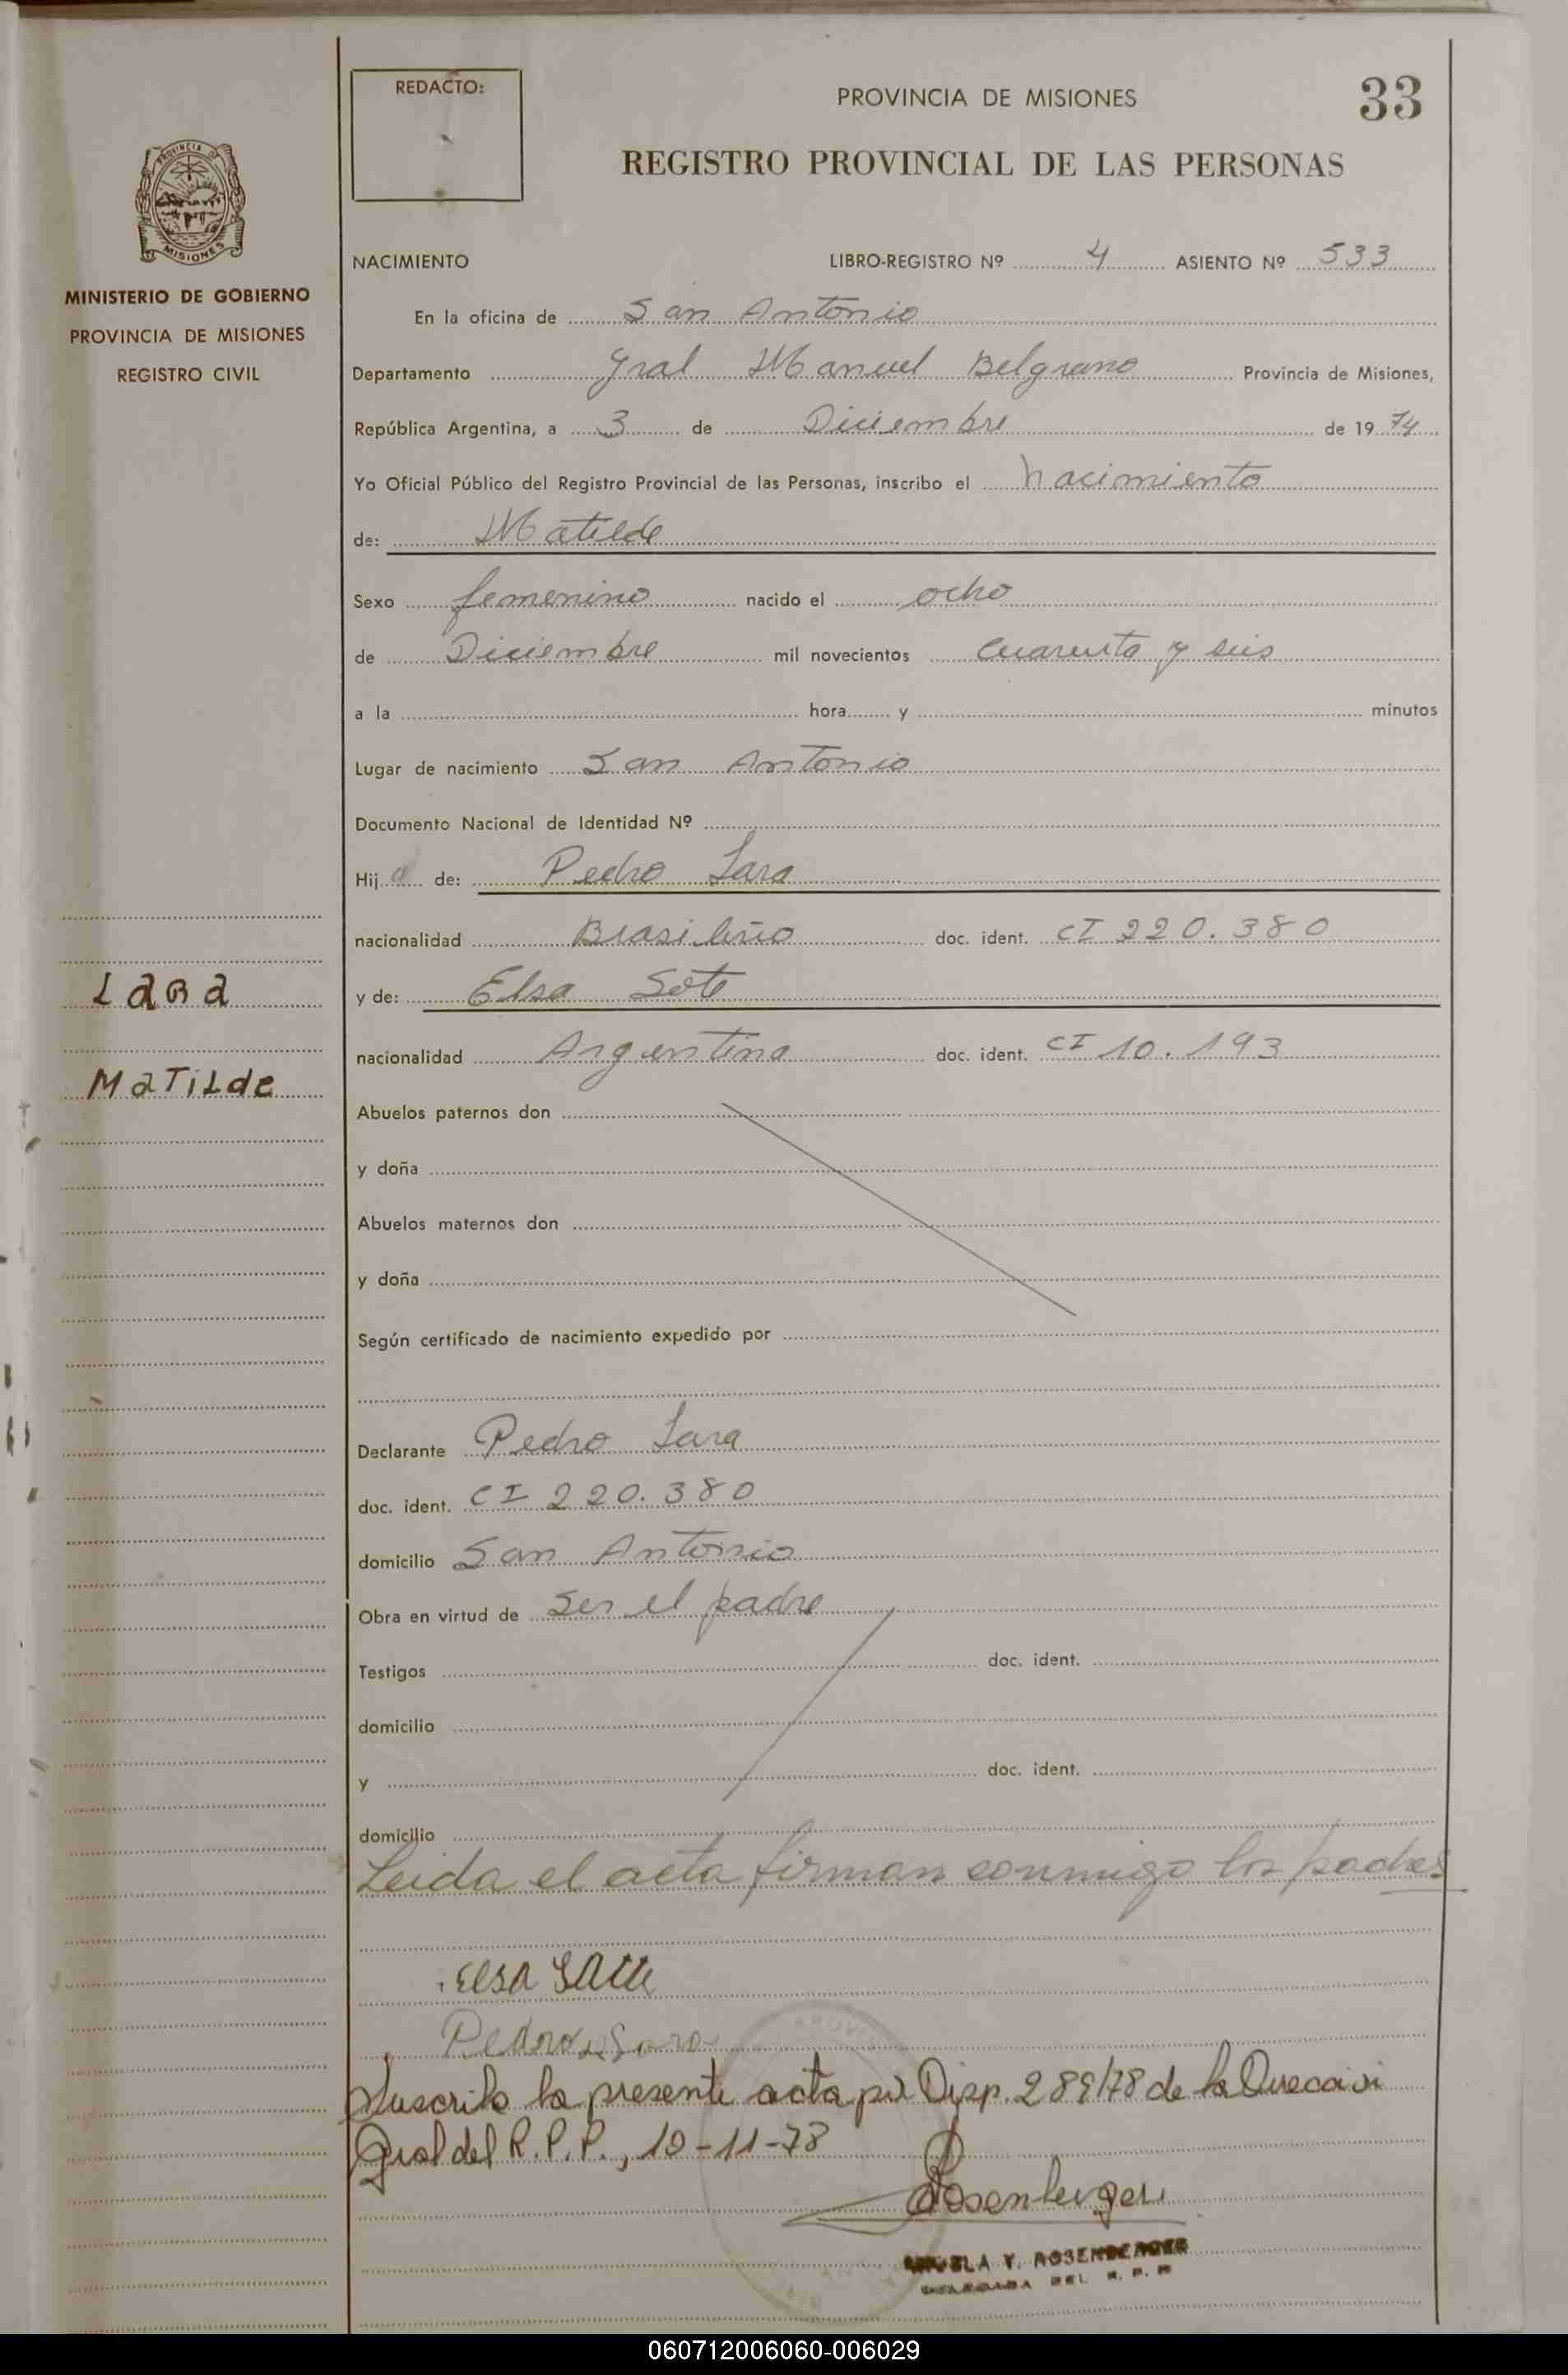 REDACTO:
PROVINCIA DE MISIONES
33
REGISTRO PROVINCIAL DE LAS PERSONAS
PROVINCIA DE
MISIONES
MINISTERIO DE GOBIERNO
PROVINCIA DE MISIONES
REGISTRO CIVIL
LARA
MATILde
NACIMIENTO LIBRO-REGISTRO Nº 4 ASIENTO Nº 533
En la oficina de San Antonio
Departamento Gral Manuel Belgrano Provincia de Misiones,
República Argentina, a 3 de Diciembre de 19 74
Yo Oficial Público del Registro Provincial de las Personas, inscribo el nacimiento
de: Matilde
Sexo femenino nacido el ocho
de Diciembre mil novecientos cuarenta y seis
a la hora y minutos
Lugar de nacimiento San Antonio
Documento Nacional de Identidad Nº
Hij a de: Pedro Lara
nacionalidad Brasileño doc. ident. CI 220.380
y de: Elsa Soto
nacionalidad Argentina doc. ident. CI 10.193
Abuelos paternos don
y doña
Abuelos maternos don
y doña
Según certificado de nacimiento expedido por
Declarante Pedro Lara
doc. ident. CI 220.380
domicilio San Antonio
Obra en virtud de ser el padre
Testigos doc. ident.
domicilio
y doc. ident.
domicilio
Leida el acta firman conmigo los padres
ELSA
Pedro Lara
Suscribo la presente acta por Disp. 289/78 de la Direccion
Gral del R.P.P., 10-11-78
Rosenberger
Y. ROSENBERGER
DEL R. P. P
060712006060-006029